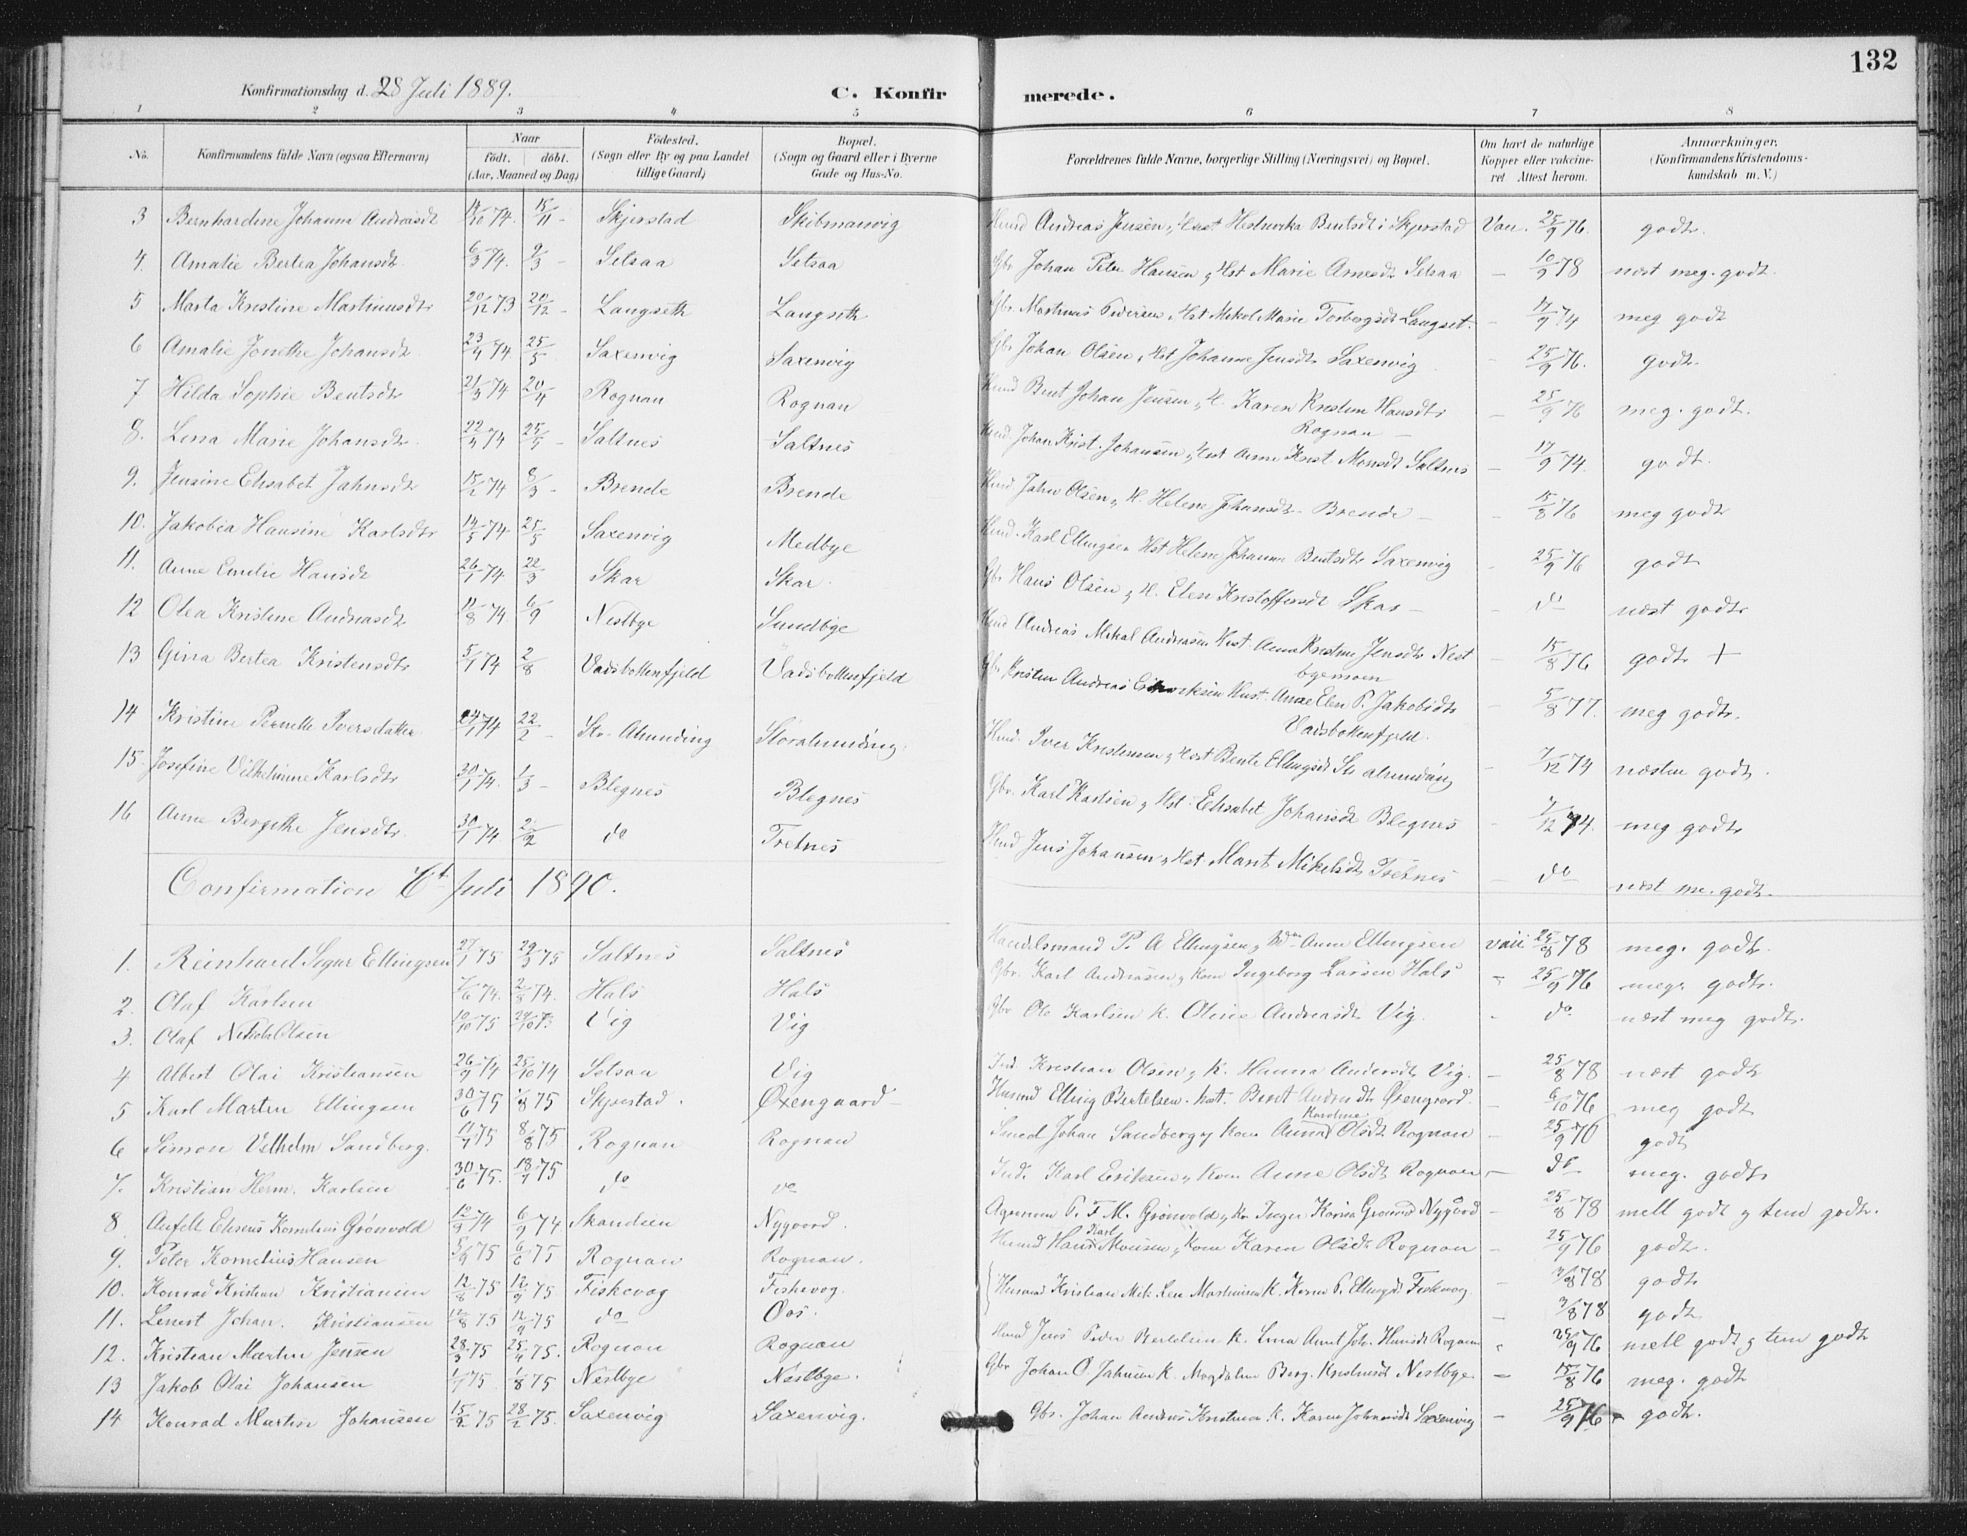 132
Konfirmationsdag d. 28 Juli 1889. C. Konfir merede.
1 2 3 4 5 6 7 8
No. Konfirmandens fulde Navn (ogsaa Efternavn) Naar födt. döbt. (Aar, Maaned og Dag) Födested. (Sogn eller By og paa Landet tillige Gaard) Bopæl. (Sogn og Gaard eller i Byerne Gade og Hus-No. Forældrenes fulde Navne, borgerlige Stilling (Næringsvei) og Bopæl. Om havt de naturlige Kopper eller vakcineret. Attest herom. Anmærkninger. (Konfirmandens Kristendomskundskab m. V.)
3 Bernhardine Johanna Andreasdt 14/10 74. 15/11 - Skjerstad Skibmanvig Andreas Jensen, Bentsdt i Skjerstad Vac. 25/9 76. godt.
4. Amalie Bertea Johansdt. 6/3 74. 9/3 - Setsaa Setsaa Gbr Johan Peter Hansen, Hst Marie Arnesdt Setsaa - 10/9 78 næst meg. godt.
5 Marta Kristine Martinusdtr 20/12 73 20/12 - Langseth Langseth Gbr. Martinus Pedersen, Hst Mikol Marie Torbergsdt Langset. - 17/9 74 meg godt
6 Amalie Jonette Johansdt. 23/4 74. 25/5 - Saxenvig Saxenvig Gbr Johan Olsen, Hst Johanne Jensdt. Saxenvig - 25/9 76. godt.
7 Hilda Sophie Bentsdt 21/3 74 20/4 Rognan Rognan Hmd Bent Johan Jensen, H. Karen Kristine Hansdtr Rognan - 25/9 76 meg. godt.
8. Lena Marie Johansdt. 22/4 74 25/5 - Saltnes Saltnes Hmd. Johan Krist. Johansen, Hst Anne Krist. Monsdt Saltnes - 17/9 74. godt.
9. Jensine Elisabet Jahnsdt 15/2 74 8/3 - Brende Brende Hmd Jahn Olsen, H. Helene Johansdt. Brende - 15/8 76 meg godt
10. Jakobia Hansine Karlsdtr 14/5 74. 25/5 Saxenvig Medbye Hmd. Karl Ellingsen Hst Helene Johanna Bentsdt Saxenvig - 25/9 76 godt
11. Anne Emelie Hansdt 26/1 74 22/3 Skar Skar. Gbr Hans Olsen, H. Elen Kristoffersdt Skar - do næst godt
12 Olea Kristine Andreasdt 11/8 74. 6/9 Nestbye Sundbye Hmd Andreas Mikal Andreasen Hst. Anna Kristine Jensdtr Nestbyemoen - 15/8 76 godt +
13 Gina Bertea Kristensdtr 5/1 74 2/8 Vadsbottenfjeld Vadsbottenfjeld Gbr Kristen Andreas Hust. Anne Elen P. Jakobsdtr Vadsbottenfjeld. - 5/8 77. meg godt.
14 Kristine Pernelle Iversdatter 24/1 74 22/2 - St. Alminding Storalminding. Hmd. Iver Kristensen, Hst Bente Ellingsdt St alminding - 7/12 74 næsten godt.
15. Josefine Vilhelmine Karlsdtr 30/1 74. 1/3 - Blegnes Blegnes Gbr. Karl Karlsen, Hst. Elisabet Johansdt Blegnes - 7/12 74. meg godt
16 Anne Bergitte Jensdtr. 30/1 74 2/2 do Tretnes Hmd Jens Johansen, Hst. Marit Mikelsdt Tretnes - do næst me. godt.
Confirmation 6t Juli 1890.
1. Reinhard Sigur Ellingsen 27/1 75 29/3 75 Saltnes Saltnes Handelsmand P. A Ellingsen, Anne Ellingsen 78 meg. godt.
2. Olaf Karlsen 7/6 74. 2/8 74. Hals Hals Gbr. Karl Andreasen, Kone Ingeborg Larsen Hals - 25/9 76 meg. godt.
3. Olaf Olsen 10/10 75 Vig Vig Gbr Ole Karlsen K. Oline Andreasdt. Vig. - do næst meg godt.
4 Albert Olai Kristiansen 26/9 74 25/10 74 Setsaa Vig Ind. Kristian Olsen, K. Hanna Andersdt. Vig. - 25/8 78 næst godt
5 Karl Martin Ellingsen 30/6 75 1/8 75 Skjerstad. Øxengaard Husmd Elling Bertelsen. hst. Berit Andersdt Øxengaard. - 6/10 76 meg godt
6 Simon Vilhelm Sandberg. 11/7 75 8/8 75 Rognan Rognan Smed Johan Sandberg, Kone Anna Karoline Olsdt. Rognan - 25/9 76 godt
7. Kristian Herm. Karlsen 30/6 75. 18/7 75 do do Ind. Karl Eriksen, Kone Anne Olsdt Rognan - do meg. godt
8 Anfelt Elseus Kornelius Grönvold 12/3 74 6/9 74 Skandsen Nygaard. P. F. M. Grönvold, Kr Inger Karina Nygård - 25/8 78 mell godt og tem godt.
9. Peter Kornelius Hansen 5/4 75 6/6 75 Rognan Rognan. Husmd Hans Karl Monsen, Kone Karen Olsdt Rognan - 25/9 76 godt.
10. Konrad Kristian Kristiansen 12/8 75 12/9 75 Fiskevog Fiskevog. Husmd Kristian Mik. Martinsen K. Karen P. Ellingsdt Fiskevog - 3/8 78 godt
11. Lenert Johan. Kristiansen 12/8 75 12/9 75 do Oos. - 3/8 78 godt
12. Kristian Martin Jensen 28/3 75 25/4 75. Rognan Rognan Hmd Jens Peder Bertelsen K. Lina Joh. Hansdt Rognan - 25/9 76 mell godt og tem godt
13 Jakob Olai Johansen 1/7 75. 1/8 75 Nestbye Nestbye. Gbr Johan O. Jahnsen K. Magdalene Berg. Kristensdt Nestbye - 15/8 76 meg. godt
14 Konrad Martin Johansen 15/2 75 28/2 75. Saxenvig Saxenvig. Gbr. Johan Andreas Kristensen K. Karen Johnsdt Saxenvig - 25/9 76 - godt.